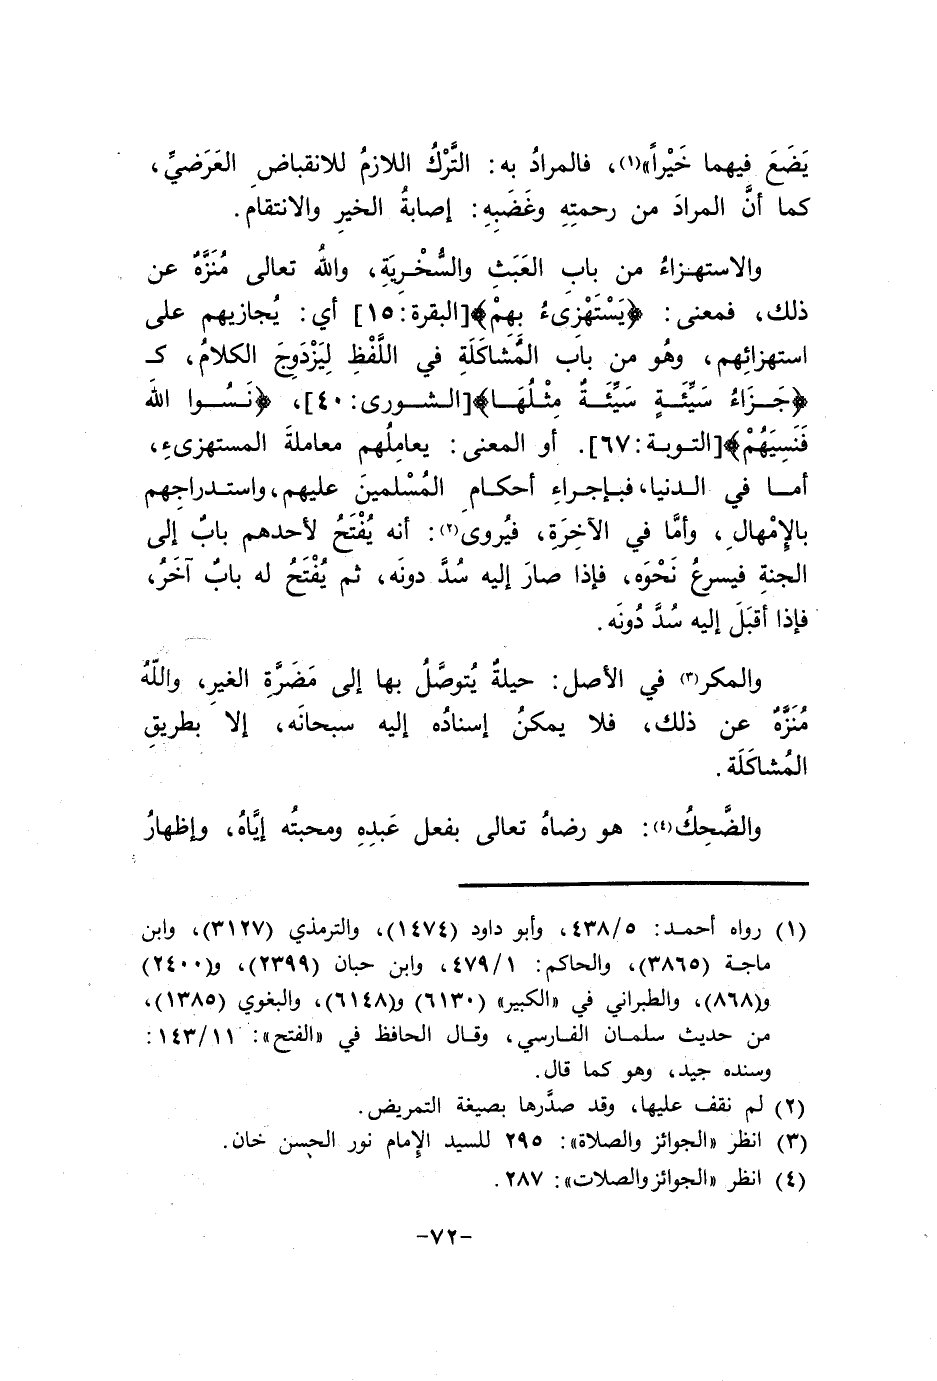 يَضَعَ فيهما خَيْراً»(١)، فالمرادُ به: التَّرْكُ اللازمُ للانقباضِ العَرَضيِّ،
كما أنَّ المرادَ من رحمتِهِ وغَضَبِهِ: إصابةُ الخيرِ والانتقام.
والاستهزاءُ من بابِ العَبَثِ والسُّخْريَةِ، واللهُ تعالى مُنَزَّهٌ عن
ذلك، فمعنى: ﴿يَسْتَهْزِىءُ بِهِمْ﴾[البقرة:١٥] أي: يُجازيهم على
استهزائِهم، وهُو من باب المُشاكَلَةِ في اللَّفْظِ لِيَزْدَوِجَ الكلامُ، كـ
﴿جَزَاءُ سَيِّئَةٍ سَيِّئَةٌ مِثْلُهَا﴾[الشورى:٤٠]، ﴿نَسُوا اللهَ
فَنَسِيَهُمْ﴾[التوبة:٦٧]. أو المعنى: يعامِلُهم معاملةَ المستهزىءِ،
أما في الدنيا، فبإجراءِ أحكامِ المُسْلمينَ عليهم، واستدراجِهم
بالإمْهالِ، وأمَّا في الآخِرَةِ، فيُروى(٢): أنه يُفْتَحُ لأحدهم بابٌ إلى
الجنةِ فيسرعُ نَحْوَه، فإذا صارَ إليه سُدَّ دونَه، ثم يُفْتَحُ له بابٌ آخَرُ،
فإذا أقبَلَ إليه سُدَّ دُونَه.
والمكر(٣) في الأصل: حيلةٌ يُتوصَّلُ بها إلى مَضَرَّةِ الغيرِ، واللّهُ
مُنَزَّهٌ عن ذلك، فلا يمكنُ إسنادُه إليه سبحانَه، إلا بطريقِ
المُشاكَلَة.
والضَّحِكُ(٤): هو رضاهُ تعالى بفعل عَبدِهِ ومحبتُه إيَّاهُ، وإظهارُ
(١) رواه أحمد: ٤٣٨/٥، وأبو داود (١٤٧٤)، والترمذي (٣١٢٧)، وابن
ماجة (٣٨٦٥)، والحاكم: ٤٧٩/١، وابن حبان (٢٣٩٩)، و(٢٤٠٠)
و(٨٦٨)، والطبراني في «الكبير» (٦١٣٠) و(٦١٤٨)، والبغوي (١٣٨٥)،
من حديث سلمان الفارسي، وقال الحافظ في «الفتح»: ١٤٣/١١:
وسنده جيد، وهو كما قال.
(٢) لم نقف عليها، وقد صدَّرها بصيغة التمريض.
(٣) انظر «الجوائز والصلاة»: ٢٩٥ للسيد الإمام نور الحسن خان.
(٤) انظر «الجوائز والصلات»: ٢٨٧.
-٧٢-